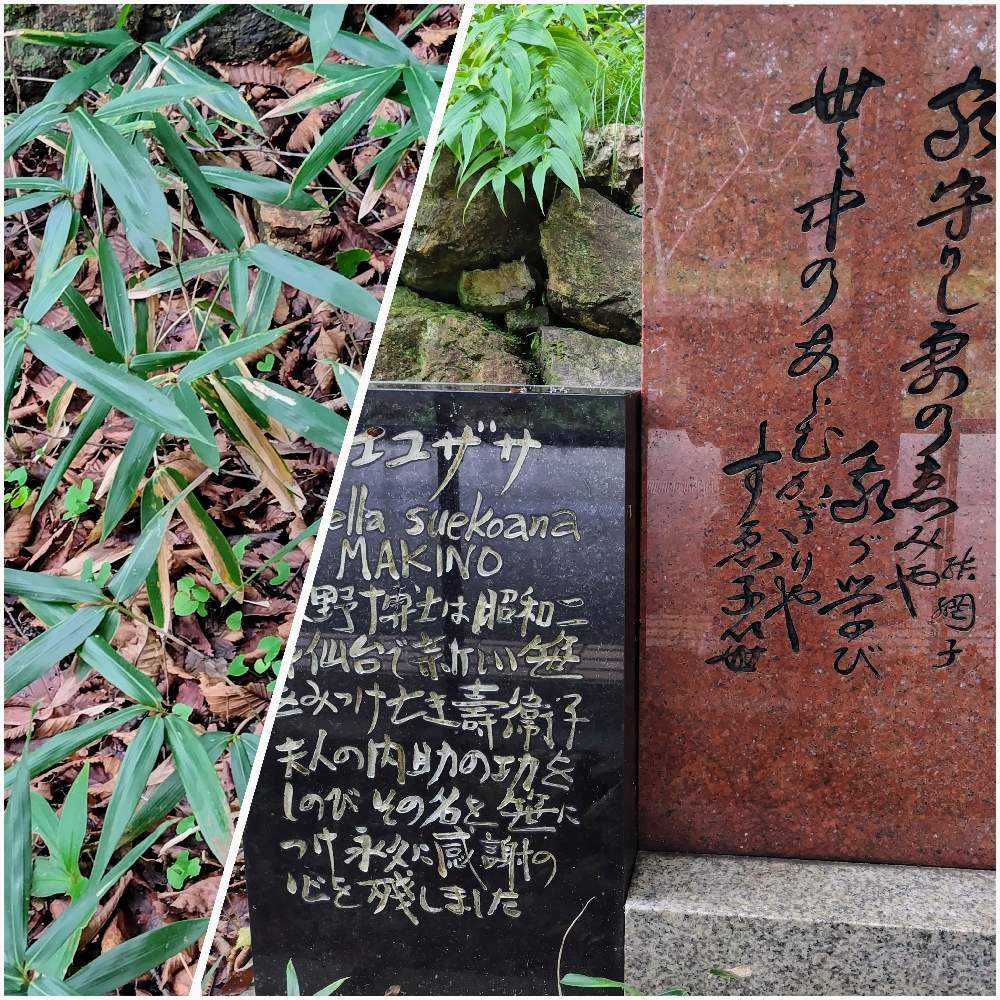 家守りし妻の恵みや
我が学び
世の中のあらむかぎりや
すゑ子笹
エコザサ
ella suekoana
MAKINO
野博士は昭和二
仙台で新しい笹
をみつけ亡き壽衛子
夫人の内助の功を
しのびその名を笹に
つけ永久に感謝の
心を残しました